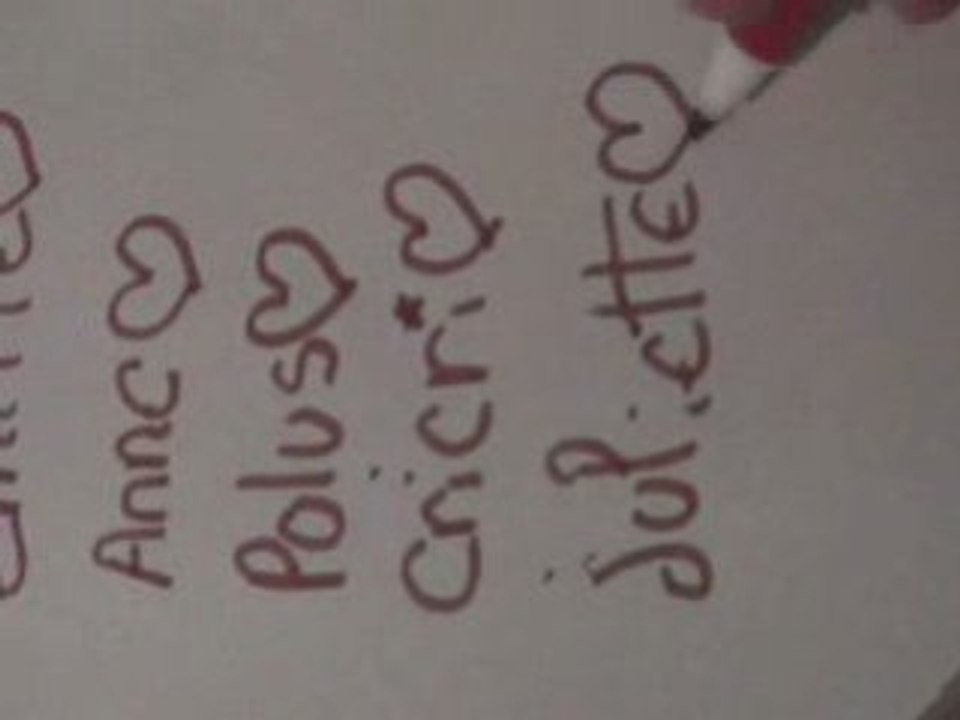 Anne ♡
Polus ♡
Cricri ♡
juliette ♡